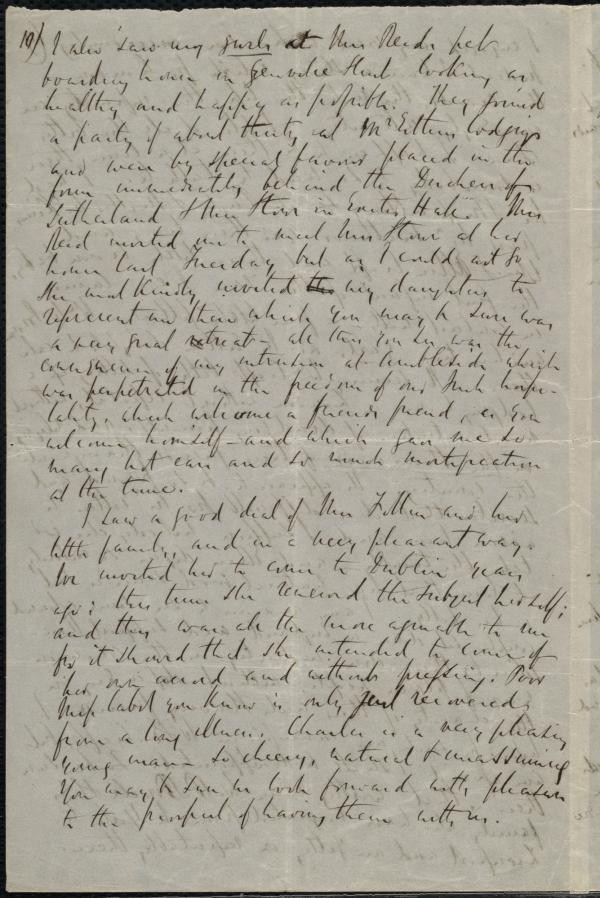 10/
I also saw my girls at Mrs Reids pet
boarding house in Grenville Street looking as
healthy and happy as possible. They joined
a party of about thirty at Mr Estlin's lodgings
and were by special favour placed in the
form immediately behind the Duchess of
Sutherland & Mrs Stowe in Exeter Hall. Mrs
Reid invited me to meet Mrs Stowe at her
house last Tuesday but as I could not go
she most kindly invited my daughters to
represent me there which you may be sure was
a very great treat - all this you see was the
consequence of my intrusion at Ambleside which
was perpetrated in the freedom of our Irish hospi-
tality, which welcome a friends friend, as you
welcome himself - and which gave me so
many hot ears and so much mortification
at the time.
I saw a good deal of Mrs Follen and her
little family, and in a very pleasant way.
We invited her to come to Dublin years
ago; this time she renewed the subject herself;
and this was all the more agreeable to me
for it showed that she intended to come of
her own accord and without pressing. Poor
Miss Cabot you know is only just recovered
from a long illness. Charles is a very pleasing
young man - so cheery, natural & unassuming
You may be sure we look forward with pleasure
to the prospect of having them with us.